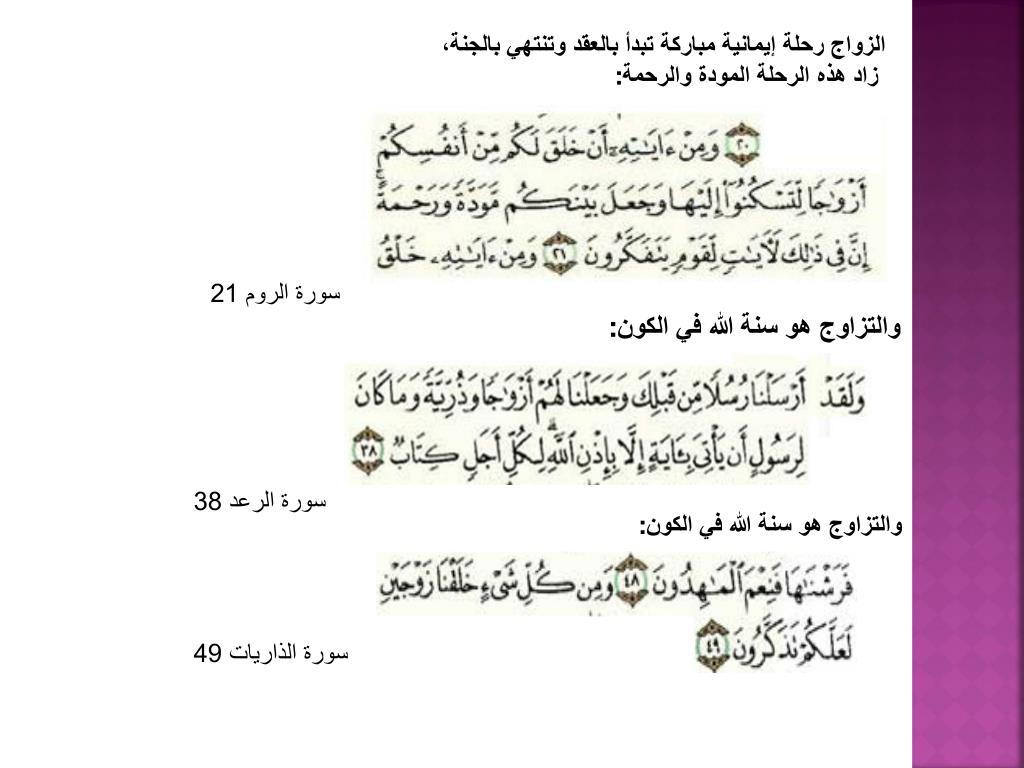 الزواج رحلة إيمانية مباركة تبدأ بالعقد وتنتهي بالجنة،
زاد هذه الرحلة المودة والرحمة:
٢٠ وَمِنْ ءَايَٰتِهِۦٓ أَنْ خَلَقَ لَكُم مِّنْ أَنفُسِكُمْ
أَزْوَٰجًا لِّتَسْكُنُوٓا۟ إِلَيْهَا وَجَعَلَ بَيْنَكُم مَّوَدَّةً وَرَحْمَةً ۚ
إِنَّ فِى ذَٰلِكَ لَءَايَٰتٍ لِّقَوْمٍ يَتَفَكَّرُونَ ٢١ وَمِنْ ءَايَٰتِهِۦ خَلْقُ
سورة الروم 21
والتزاوج هو سنة الله في الكون:
وَلَقَدْ أَرْسَلْنَا رُسُلًا مِّن قَبْلِكَ وَجَعَلْنَا لَهُمْ أَزْوَٰجًا وَذُرِّيَّةً ۚ وَمَا كَانَ
لِرَسُولٍ أَن يَأْتِىَ بِـَٔايَةٍ إِلَّا بِإِذْنِ ٱللَّهِ ۗ لِكُلِّ أَجَلٍ كِتَابٌ ٣٨
سورة الرعد 38
والتزاوج هو سنة الله في الكون:
فَرَشْنَٰهَا فَنِعْمَ ٱلْمَٰهِدُونَ ٤٨ وَمِن كُلِّ شَىْءٍ خَلَقْنَا زَوْجَيْنِ
لَعَلَّكُمْ تَذَكَّرُونَ ٤٩
سورة الذاريات 49